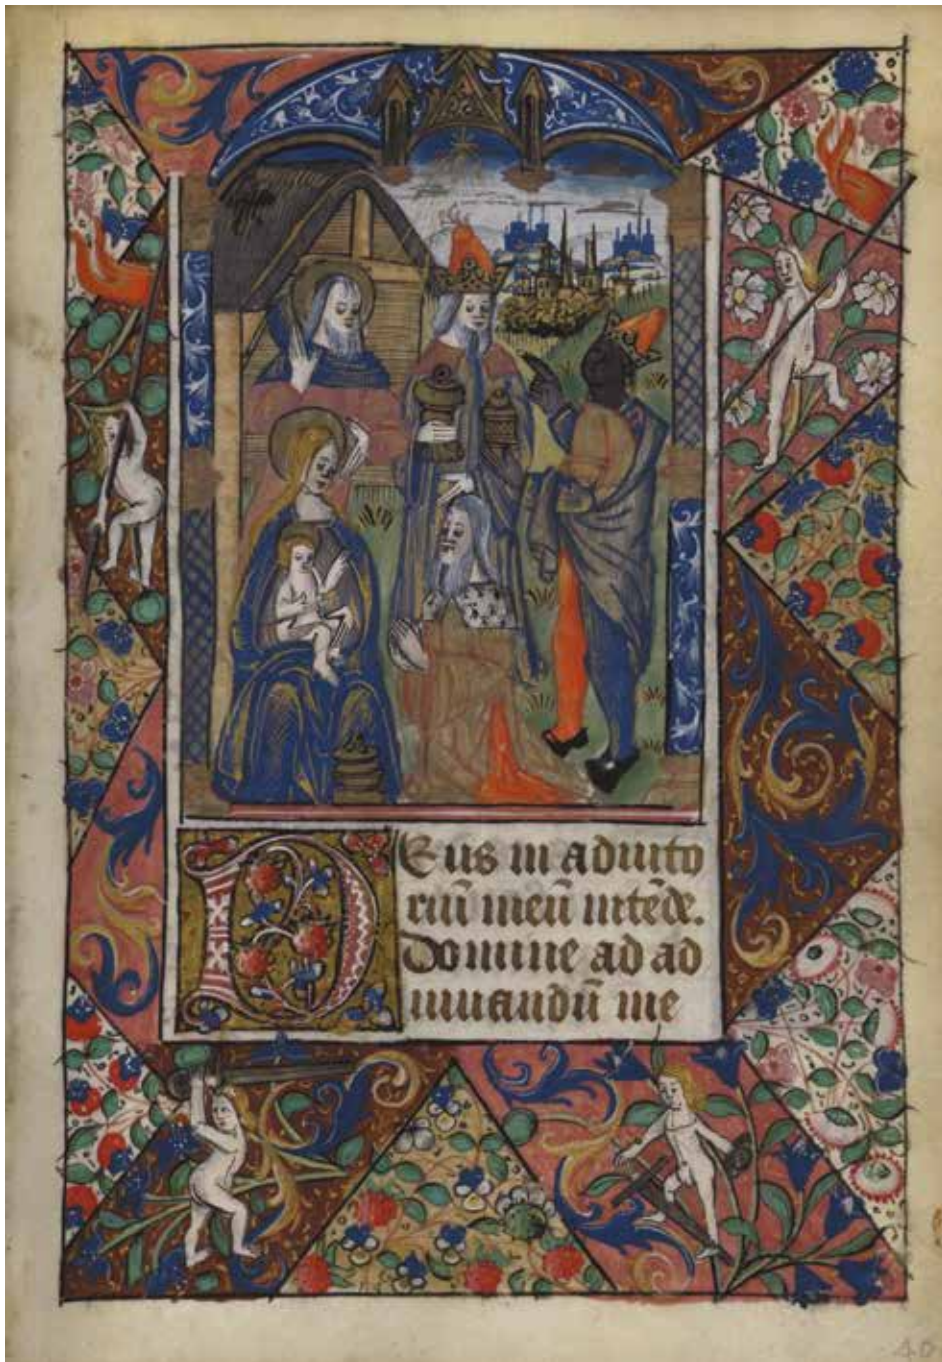 Deus in adiuto
riū meū intēde.
Domine ad ad
iuuandū me
40